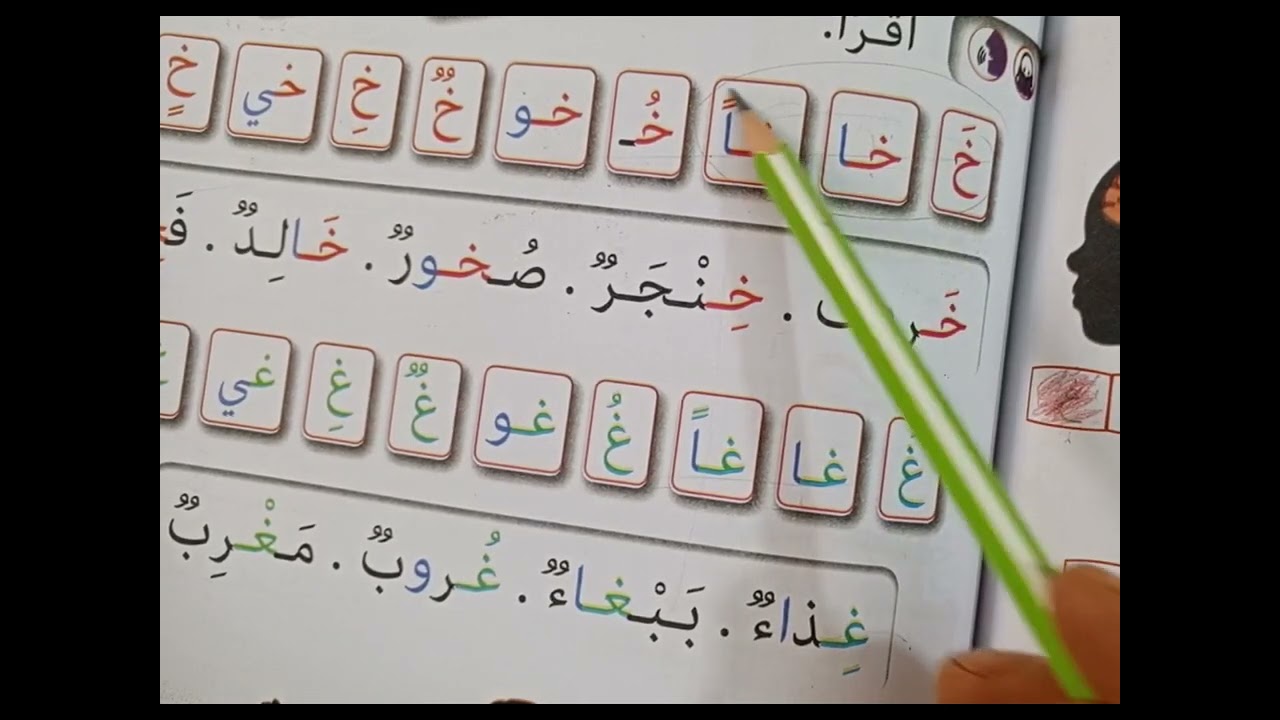 اقرأ.
خَ خا خاً خُـ خو خٌ خِ خي خٍ
خِنْجَرٌ . صُخورٌ . خَالِدٌ .
غَ غا غاً غُ غو غٌ غِ غي
غِذاءٌ . بَبْغاءٌ . غُروبٌ . مَغْرِبٌ